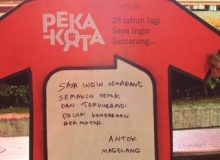 PEKA
KOTA
25 tahun lagi
Saya ingin
Semarang...
SAYA INGIN SEMARANG
SEMAKIN SEJUK
DAN TERKURANGI
POLUSI KENDARAAN
BERMOTOR
ANTOK
MAGELANG